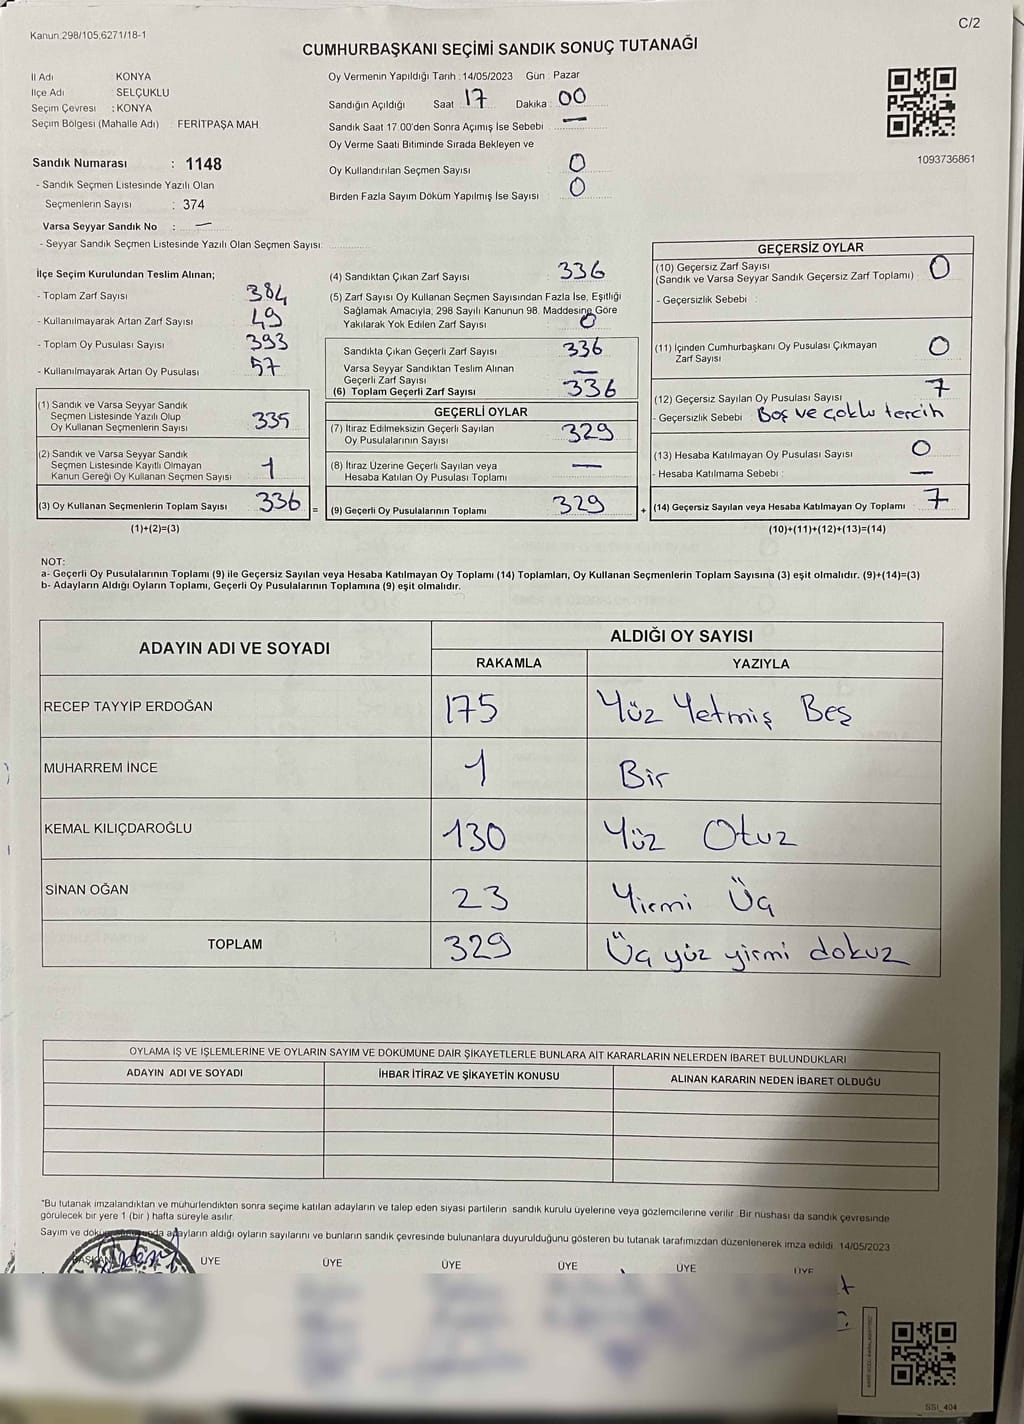 Kanun:298/105,6271/18-1
C/2
CUMHURBAŞKANI SEÇİMİ SANDIK SONUÇ TUTANAĞI
İl Adı KONYA
İlçe Adı SELÇUKLU
Seçim Çevresi : KONYA
Seçim Bölgesi (Mahalle Adı) : FERİTPAŞA MAH.
Sandık Numarası : 1148
- Sandık Seçmen Listesinde Yazılı Olan
Seçmenlerin Sayısı : 374
Varsa Seyyar Sandık No : —
- Seyyar Sandık Seçmen Listesinde Yazılı Olan Seçmen Sayısı:
Oy Vermenin Yapıldığı Tarih : 14/05/2023 Gün : Pazar
Sandığın Açıldığı Saat : 17 Dakika : 00
Sandık Saat 17.00'den Sonra Açımış İse Sebebi : —
Oy Verme Saati Bitiminde Sırada Bekleyen ve
Oy Kullandırılan Seçmen Sayısı : 0
Birden Fazla Sayım Döküm Yapılmış İse Sayısı : 0
1093736861
İlçe Seçim Kurulundan Teslim Alınan;
- Toplam Zarf Sayısı 384
- Kullanılmayarak Artan Zarf Sayısı : 49
- Toplam Oy Pusulası Sayısı : 393
- Kullanılmayarak Artan Oy Pusulası : 57
(1) Sandık ve Varsa Seyyar Sandık
Seçmen Listesinde Yazılı Olup
Oy Kullanan Seçmenlerin Sayısı : 335
(2) Sandık ve Varsa Seyyar Sandık
Seçmen Listesinde Kayıtlı Olmayan
Kanun Gereği Oy Kullanan Seçmen Sayısı : 1
(3) Oy Kullanan Seçmenlerin Toplam Sayısı : 336
(1)+(2)=(3)
=
(4) Sandıktan Çıkan Zarf Sayısı : 336
(5) Zarf Sayısı Oy Kullanan Seçmen Sayısından Fazla İse, Eşitliği
Sağlamak Amacıyla, 298 Sayılı Kanunun 98. Maddesine Göre
Yakılarak Yok Edilen Zarf Sayısı : 0
Sandıkta Çıkan Geçerli Zarf Sayısı : 336
Varsa Seyyar Sandıktan Teslim Alınan
Geçerli Zarf Sayısı : —
(6) Toplam Geçerli Zarf Sayısı : 336
GEÇERLİ OYLAR
(7) İtiraz Edilmeksizin Geçerli Sayılan
Oy Pusulalarının Sayısı : 329
(8) İtiraz Üzerine Geçerli Sayılan veya
Hesaba Katılan Oy Pusulası Toplamı : —
(9) Geçerli Oy Pusulalarının Toplamı : 329
+
GEÇERSİZ OYLAR
(10) Geçersiz Zarf Sayısı
(Sandık ve Varsa Seyyar Sandık Geçersiz Zarf Toplamı) : 0
- Geçersizlik Sebebi :
(11) İçinden Cumhurbaşkanı Oy Pusulası Çıkmayan
Zarf Sayısı : 0
(12) Geçersiz Sayılan Oy Pusulası Sayısı : 7
- Geçersizlik Sebebi : Boş ve çoklu tercih
(13) Hesaba Katılmayan Oy Pusulası Sayısı : 0
- Hesaba Katılmama Sebebi : —
(14) Geçersiz Sayılan veya Hesaba Katılmayan Oy Toplamı : 7
(10)+(11)+(12)+(13)=(14)
NOT:
a- Geçerli Oy Pusulalarının Toplamı (9) ile Geçersiz Sayılan veya Hesaba Katılmayan Oy Toplamı (14) Toplamları, Oy Kullanan Seçmenlerin Toplam Sayısına (3) eşit olmalıdır. (9)+(14)=(3)
b- Adayların Aldığı Oyların Toplamı, Geçerli Oy Pusulalarının Toplamına (9) eşit olmalıdır.
ADAYIN ADI VE SOYADI
ALDIĞI OY SAYISI
RAKAMLA YAZIYLA
RECEP TAYYİP ERDOĞAN 175 Yüz Yetmiş Beş
MUHARREM İNCE 1 Bir
KEMAL KILIÇDAROĞLU 130 Yüz Otuz
SİNAN OĞAN 23 Yirmi Üç
TOPLAM 329 Üç yüz yirmi dokuz
OYLAMA İŞ VE İŞLEMLERİNE VE OYLARIN SAYIM VE DÖKÜMÜNE DAİR ŞİKAYETLERLE BUNLARA AİT KARARLARIN NELERDEN İBARET BULUNDUKLARI
ADAYIN ADI VE SOYADI İHBAR İTİRAZ VE ŞİKAYETİN KONUSU ALINAN KARARIN NEDEN İBARET OLDUĞU
*Bu tutanak imzalandıktan ve mühürlendikten sonra seçime katılan adayların ve talep eden siyasi partilerin sandık kurulu üyelerine veya gözlemcilerine verilir. Bir nüshası da sandık çevresinde
görülecek bir yere 1 (bir ) hafta süreyle asılır.
Sayım ve döküm sonunda adayların aldığı oyların sayılarını ve bunların sandık çevresinde bulunanlara duyurulduğunu gösteren bu tutanak tarafımızdan düzenlenerek imza edildi. 14/05/2023
BAŞKAN ÜYE ÜYE ÜYE ÜYE ÜYE ÜYE
SSI_404